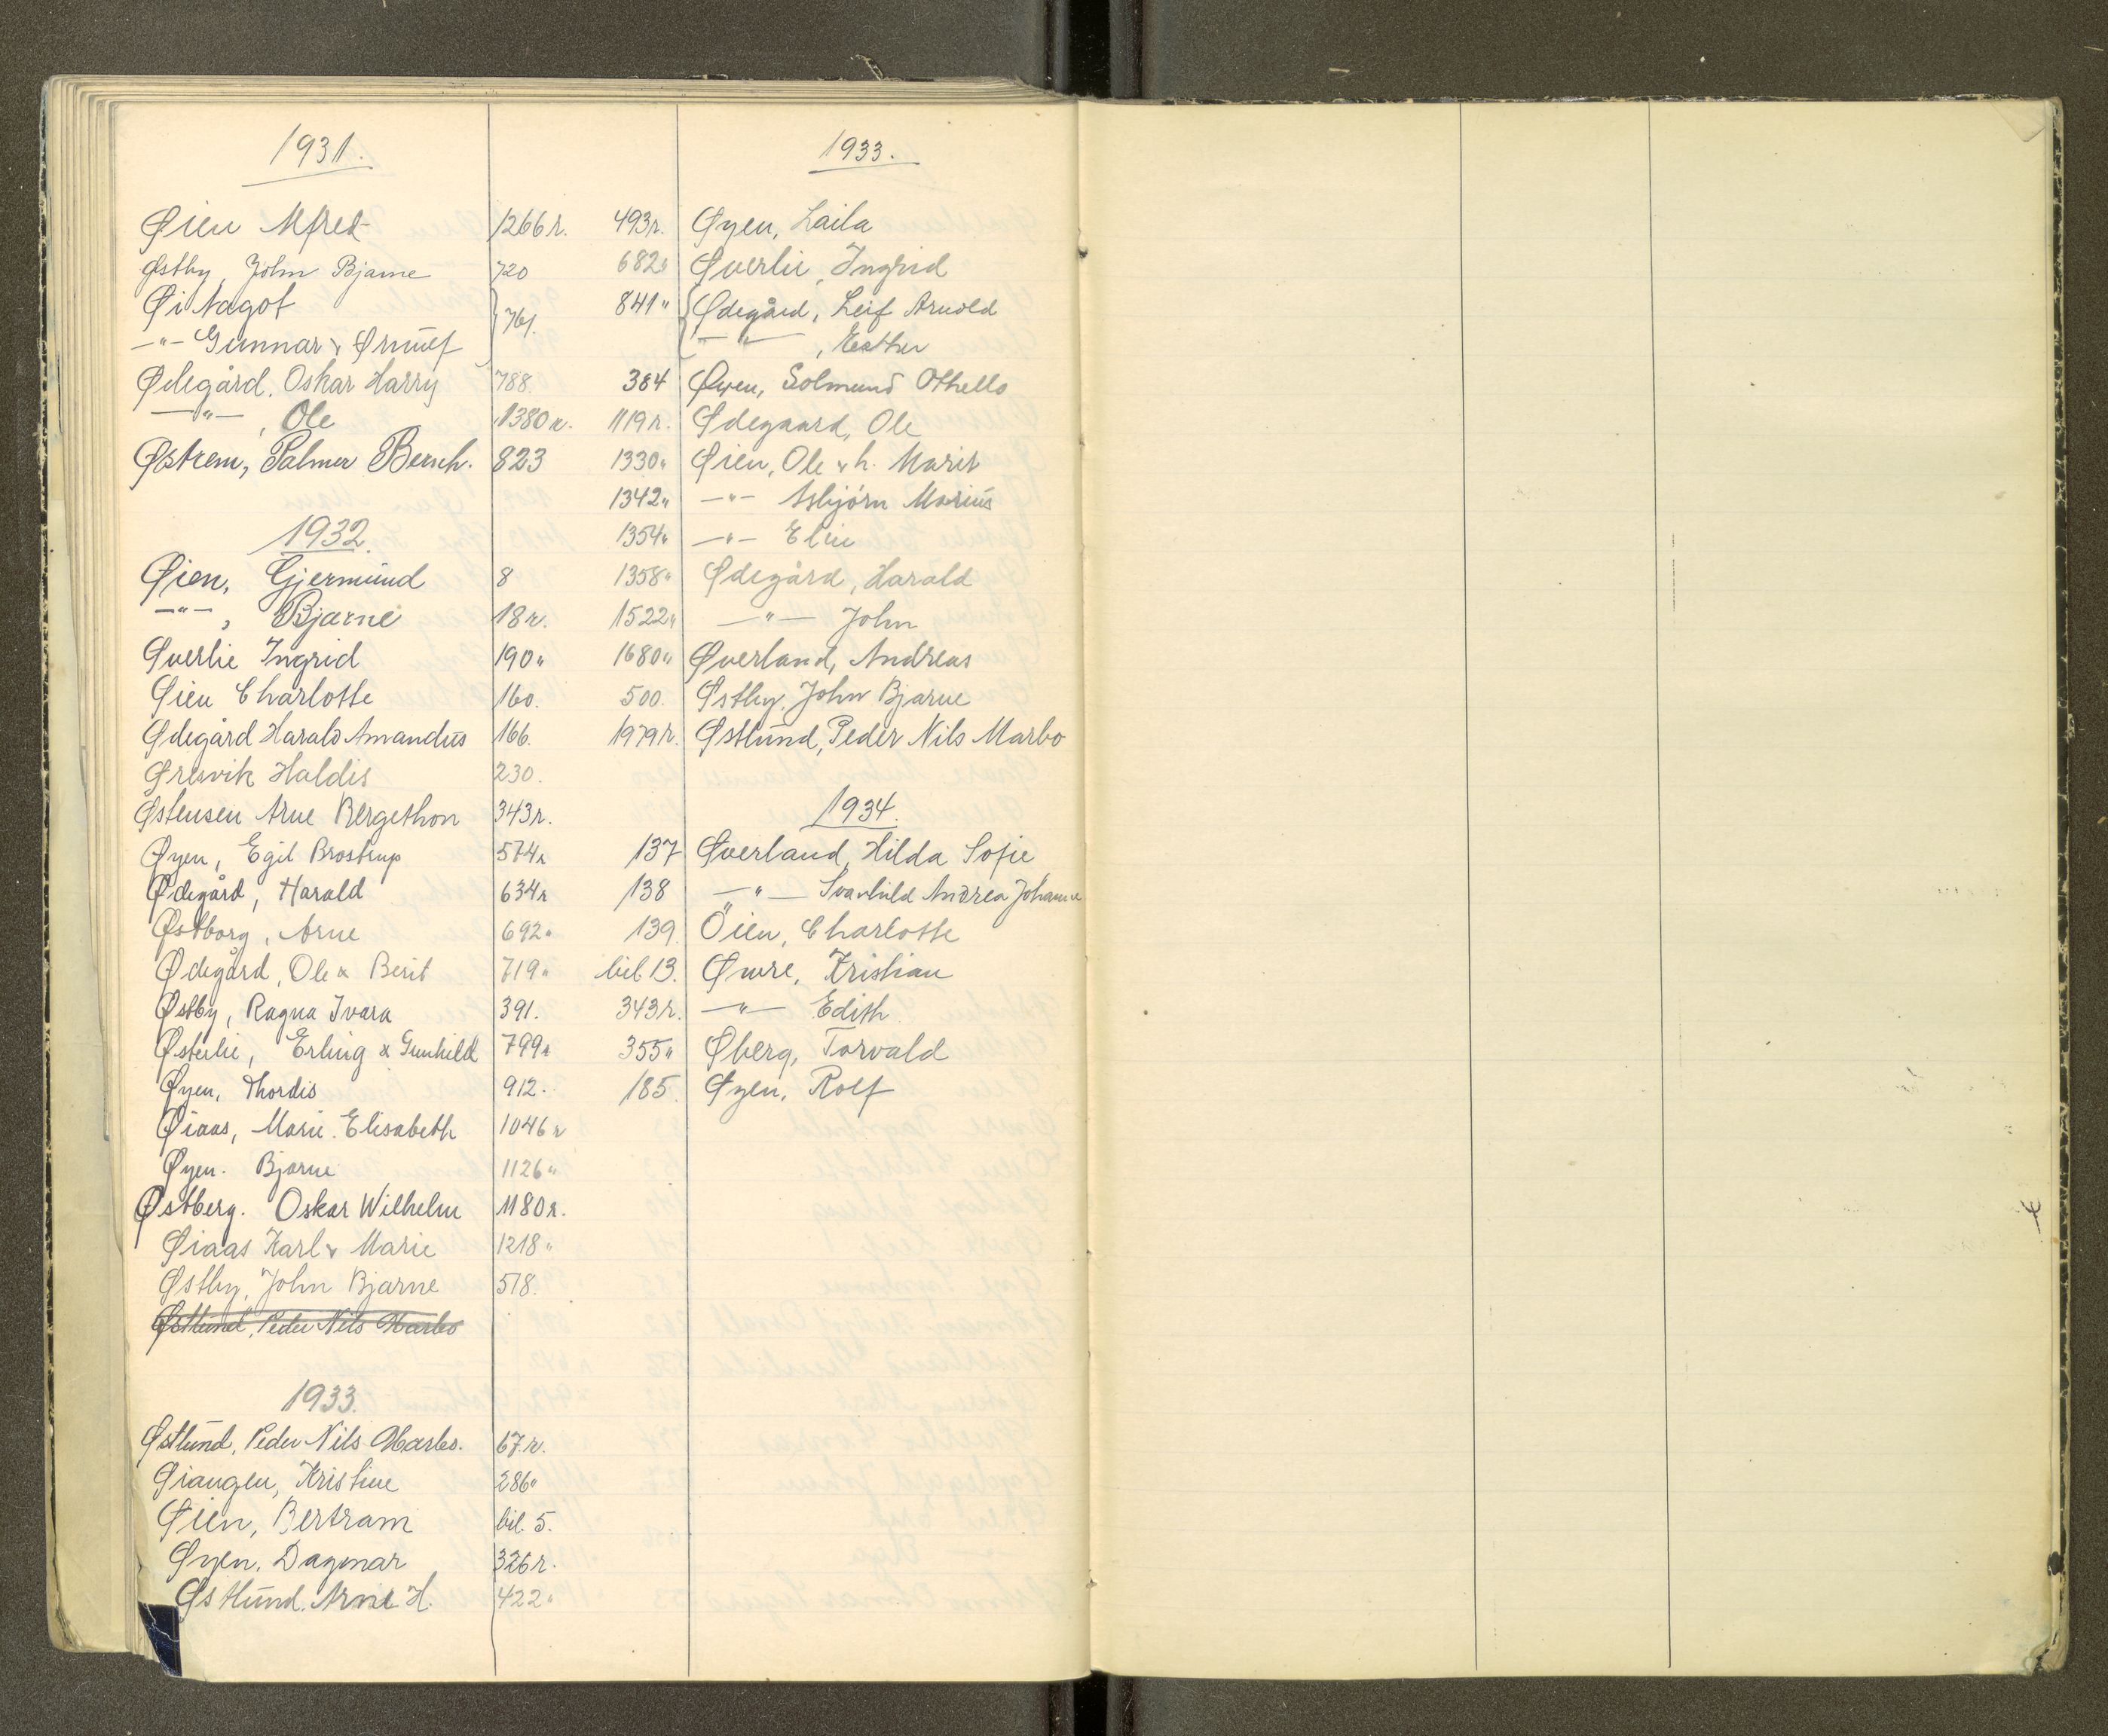 1931.
Øien Alfred 1266 r.
Østby, John Bjarne 720
Øi Nagot } 761.
-"- Gunnar & Ørnulf
Ødegård, Oskar Harry 788.
-"-, Ole 1380 r.
Østrem, Palmer Bersh. 823
1932.
Øien, Gjermund 8
-"-, Bjarne 18 r.
Øverlie Ingrid 190 "
Øien Charlotte 160.
Ødegård Harald Amandus 166.
Øresvik Haldis 230.
Østensen Arne Bergethon 343 r.
Øyen, Egil Brostrup 574 r
Ødegård, Harald 634 r
Østborg, Arne 692 "
Ødegård, Ole & Berit 719 "
Østby, Ragna Ivara 391.
Østerlie, Erling & Gunhild 799 r
Øyen, Thordis 912.
Øiaas, Marie Elisabeth 1046 r
Øyen. Bjarne 1126 "
Østberg. Oskar Wilhelm 1180 r.
Øiaas Karl & Marie 1218 "
Østby, John Bjarne 518.
Østlund, Peder Nils Marbo
1933.
Østlund, Peder Nils Marbo. 67. r.
Øiangen, Kristine 286 "
Øien, Bertram bil. 5.
Øyen, Dagmar 326 r.
Østlund. Arne H. 422 "
1933.
493 r. Øyen, Laila
682 " Øverlie, Ingrid
841 " { Ødegård, Leif Arnold
-"-, Esther
384 Øyen, Solmund Othello
1119 r. Ødegaard, Ole
1330 " Øien, Ole & h. Marit
1342 " -"- Asbjørn Marius
1354 " -"- Elin
1358 " Ødegård, Harald
1522 " -"- John
1680 " Øverland, Andreas
500. Østby, John Bjarne
1979 r. Østlund, Peder Nils Marbo
1934.
137 Øverland, Hilda Sofie
138 -"- Svanhild Andrea Johanne
139. Öien, Charlotte
bil 13. Øwre, Kristian
343 r. -"- Edith
355 " Øberg, Torvald
185. Øyen, Rolf